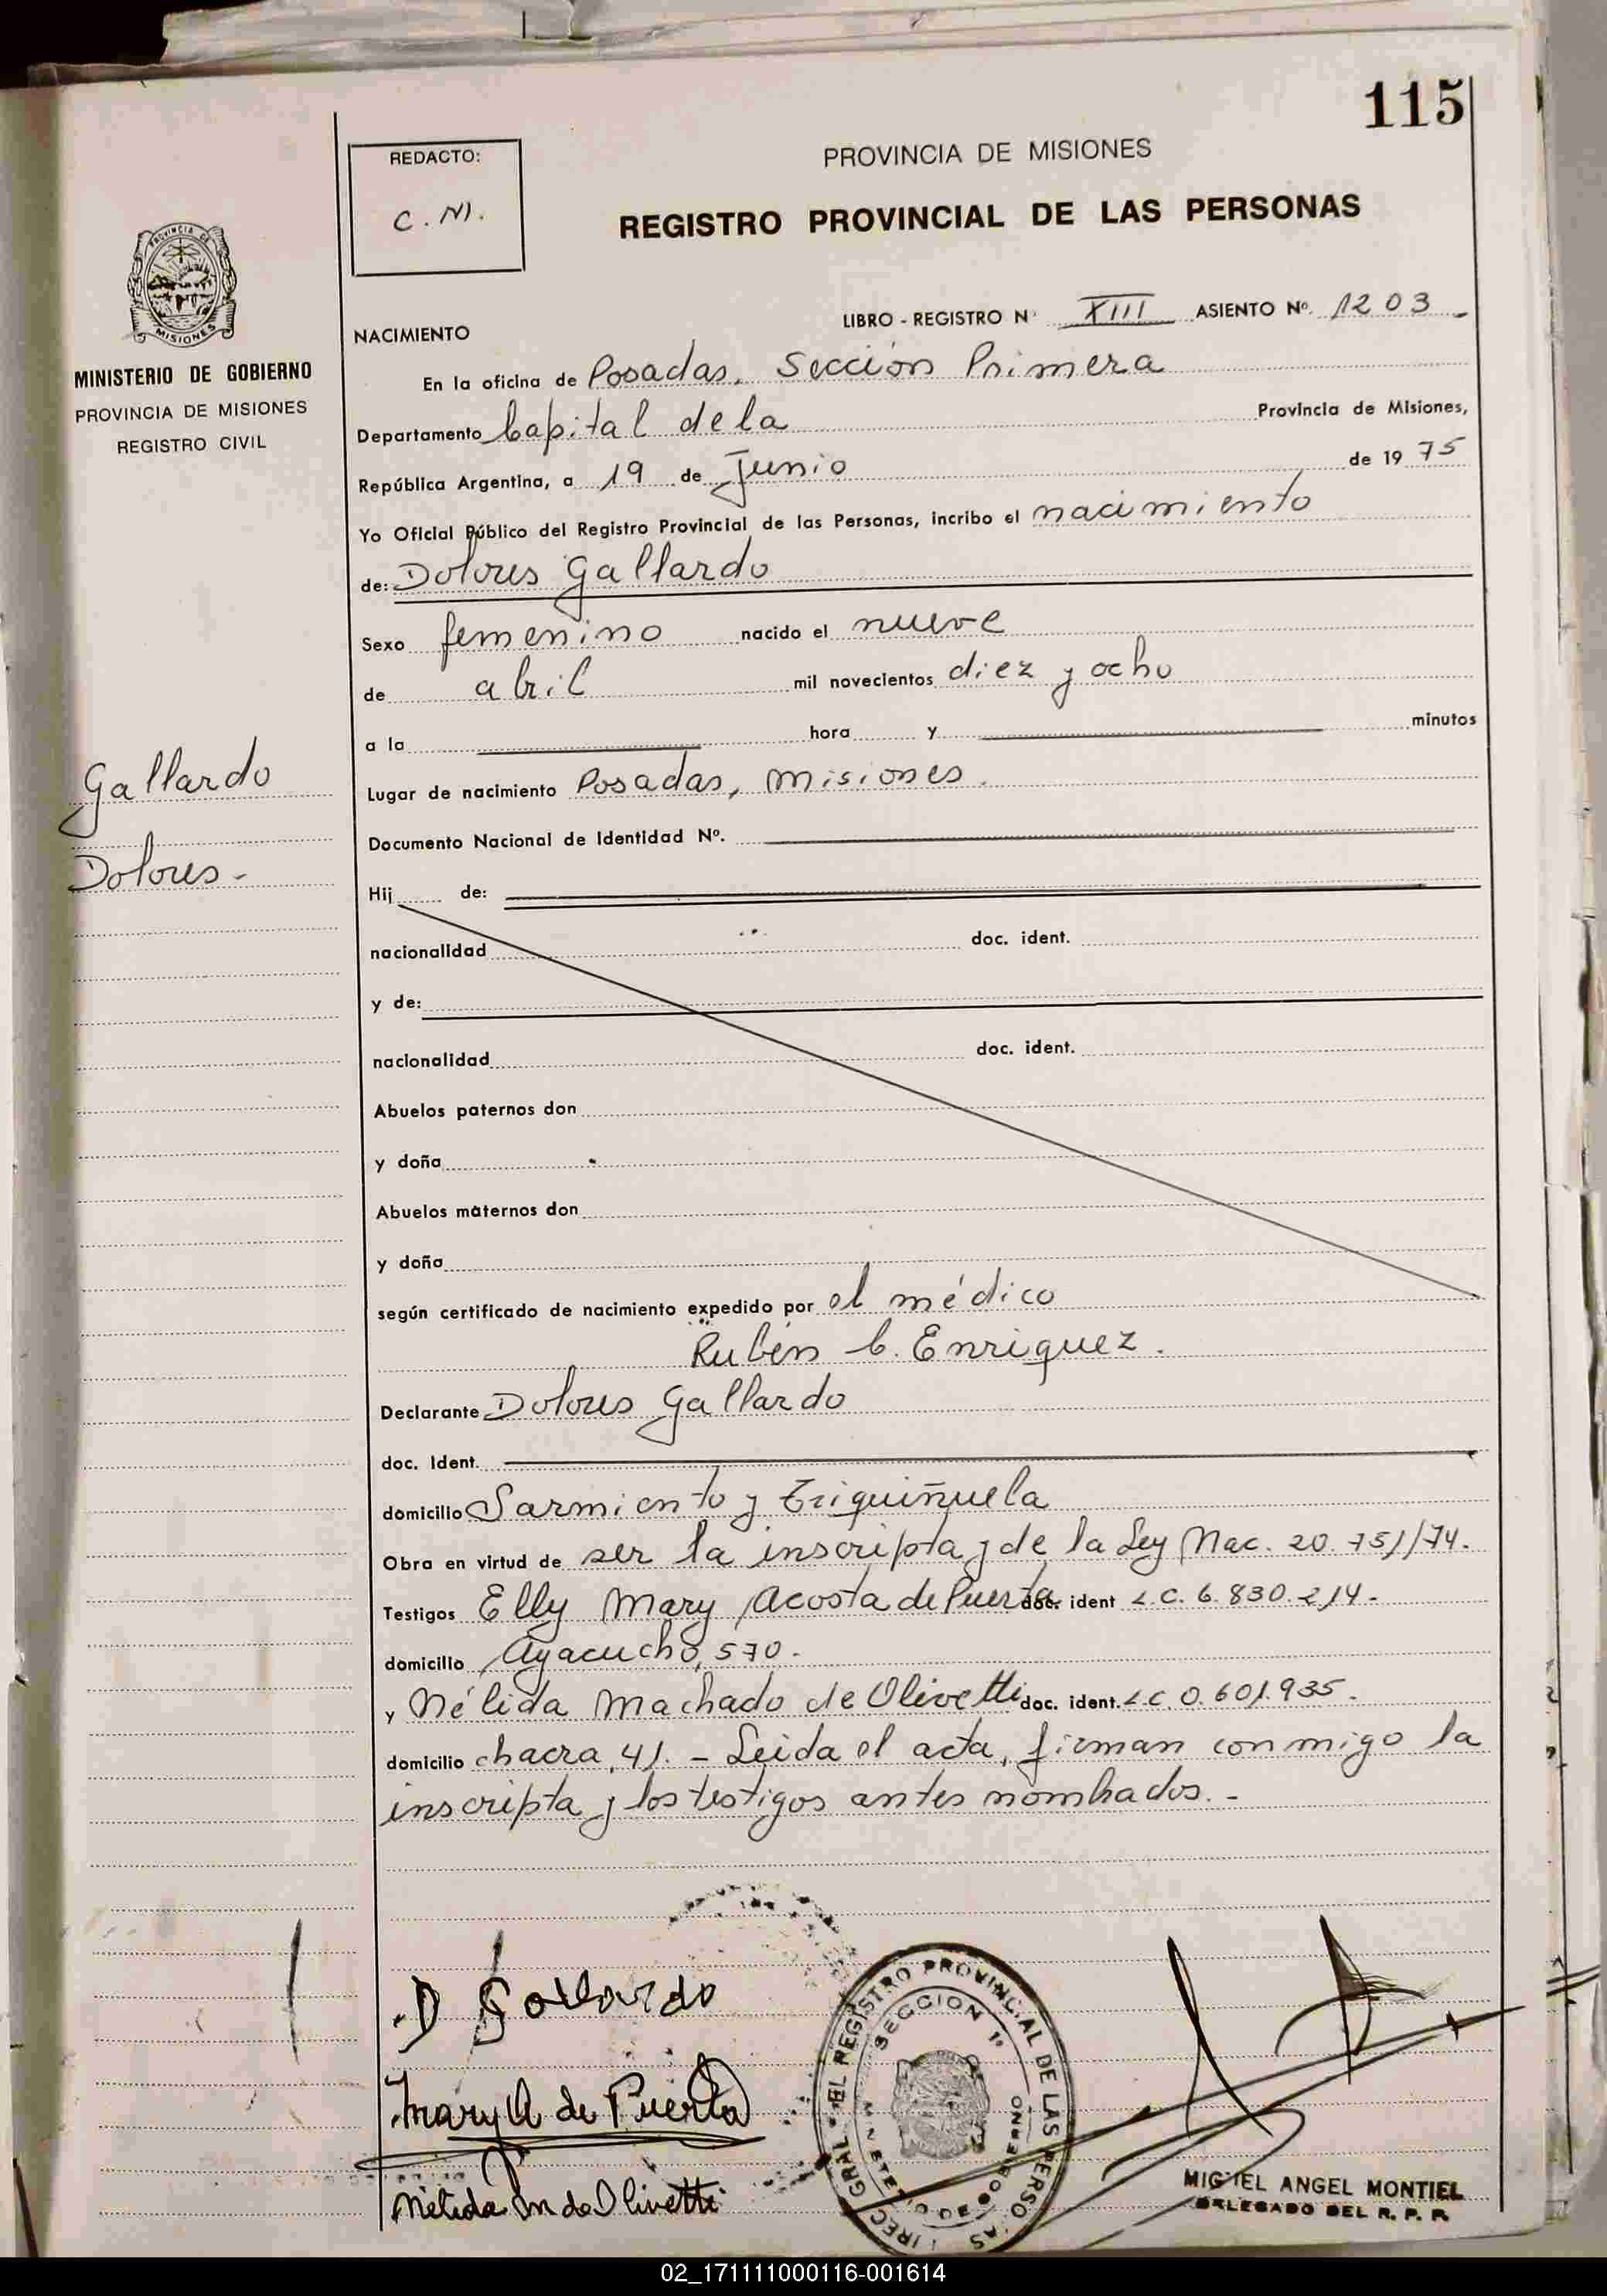 115
REDACTO:
C. N.
PROVINCIA DE MISIONES
REGISTRO PROVINCIAL DE LAS PERSONAS
PROVINCIA DE
MISIONES
MINISTERIO DE GOBIERNO
PROVINCIA DE MISIONES
REGISTRO CIVIL
LIBRO - REGISTRO Nº XIII ASIENTO Nº. 1203
NACIMIENTO
En la oficina de Posadas, Sección Primera
Departamento Capital de la Provincia de Misiones,
República Argentina, a 19 de Junio de 1975
Yo Oficial Público del Registro Provincial de las Personas, incribo el nacimiento
de: Dolores Gallardo
Sexo femenino nacido el nueve
de abril mil novecientos diez y ocho
a la hora y minutos
Gallardo
Dolores -
Lugar de nacimiento Posadas, Misiones.
Documento Nacional de Identidad Nº.
Hij de:
nacionalidad doc. ident.
y de:
nacionalidad doc. ident.
Abuelos paternos don
y doña
Abuelos maternos don
y doña
según certificado de nacimiento expedido por el médico
Rubén C. Enriquez.
Declarante Dolores Gallardo
doc. Ident.
domicilio Sarmiento y Triquiñuela
Obra en virtud de ser la inscripta y de la Ley Nac. 20.751/74.
Testigos Elly Mary Acosta de Puerta doc. ident L.C. 6.830.214.
domicilio Ayacucho, 570.
y Nélida Machado de Olivetti doc. ident. L.C. 0.601.935.
domicilio chacra, 41. - Leida el acta, firman conmigo la
inscripta y los testigos antes nombrados. -
D Gallardo
Mary A de Puerta
Nélida M de Olivetti
REGISTRO PROVINCIAL DE LAS PERSONAS
SECCION 1ª
MIGUEL ANGEL MONTIEL
DELEGADO DEL R. P. P.
02_171111000116-001614